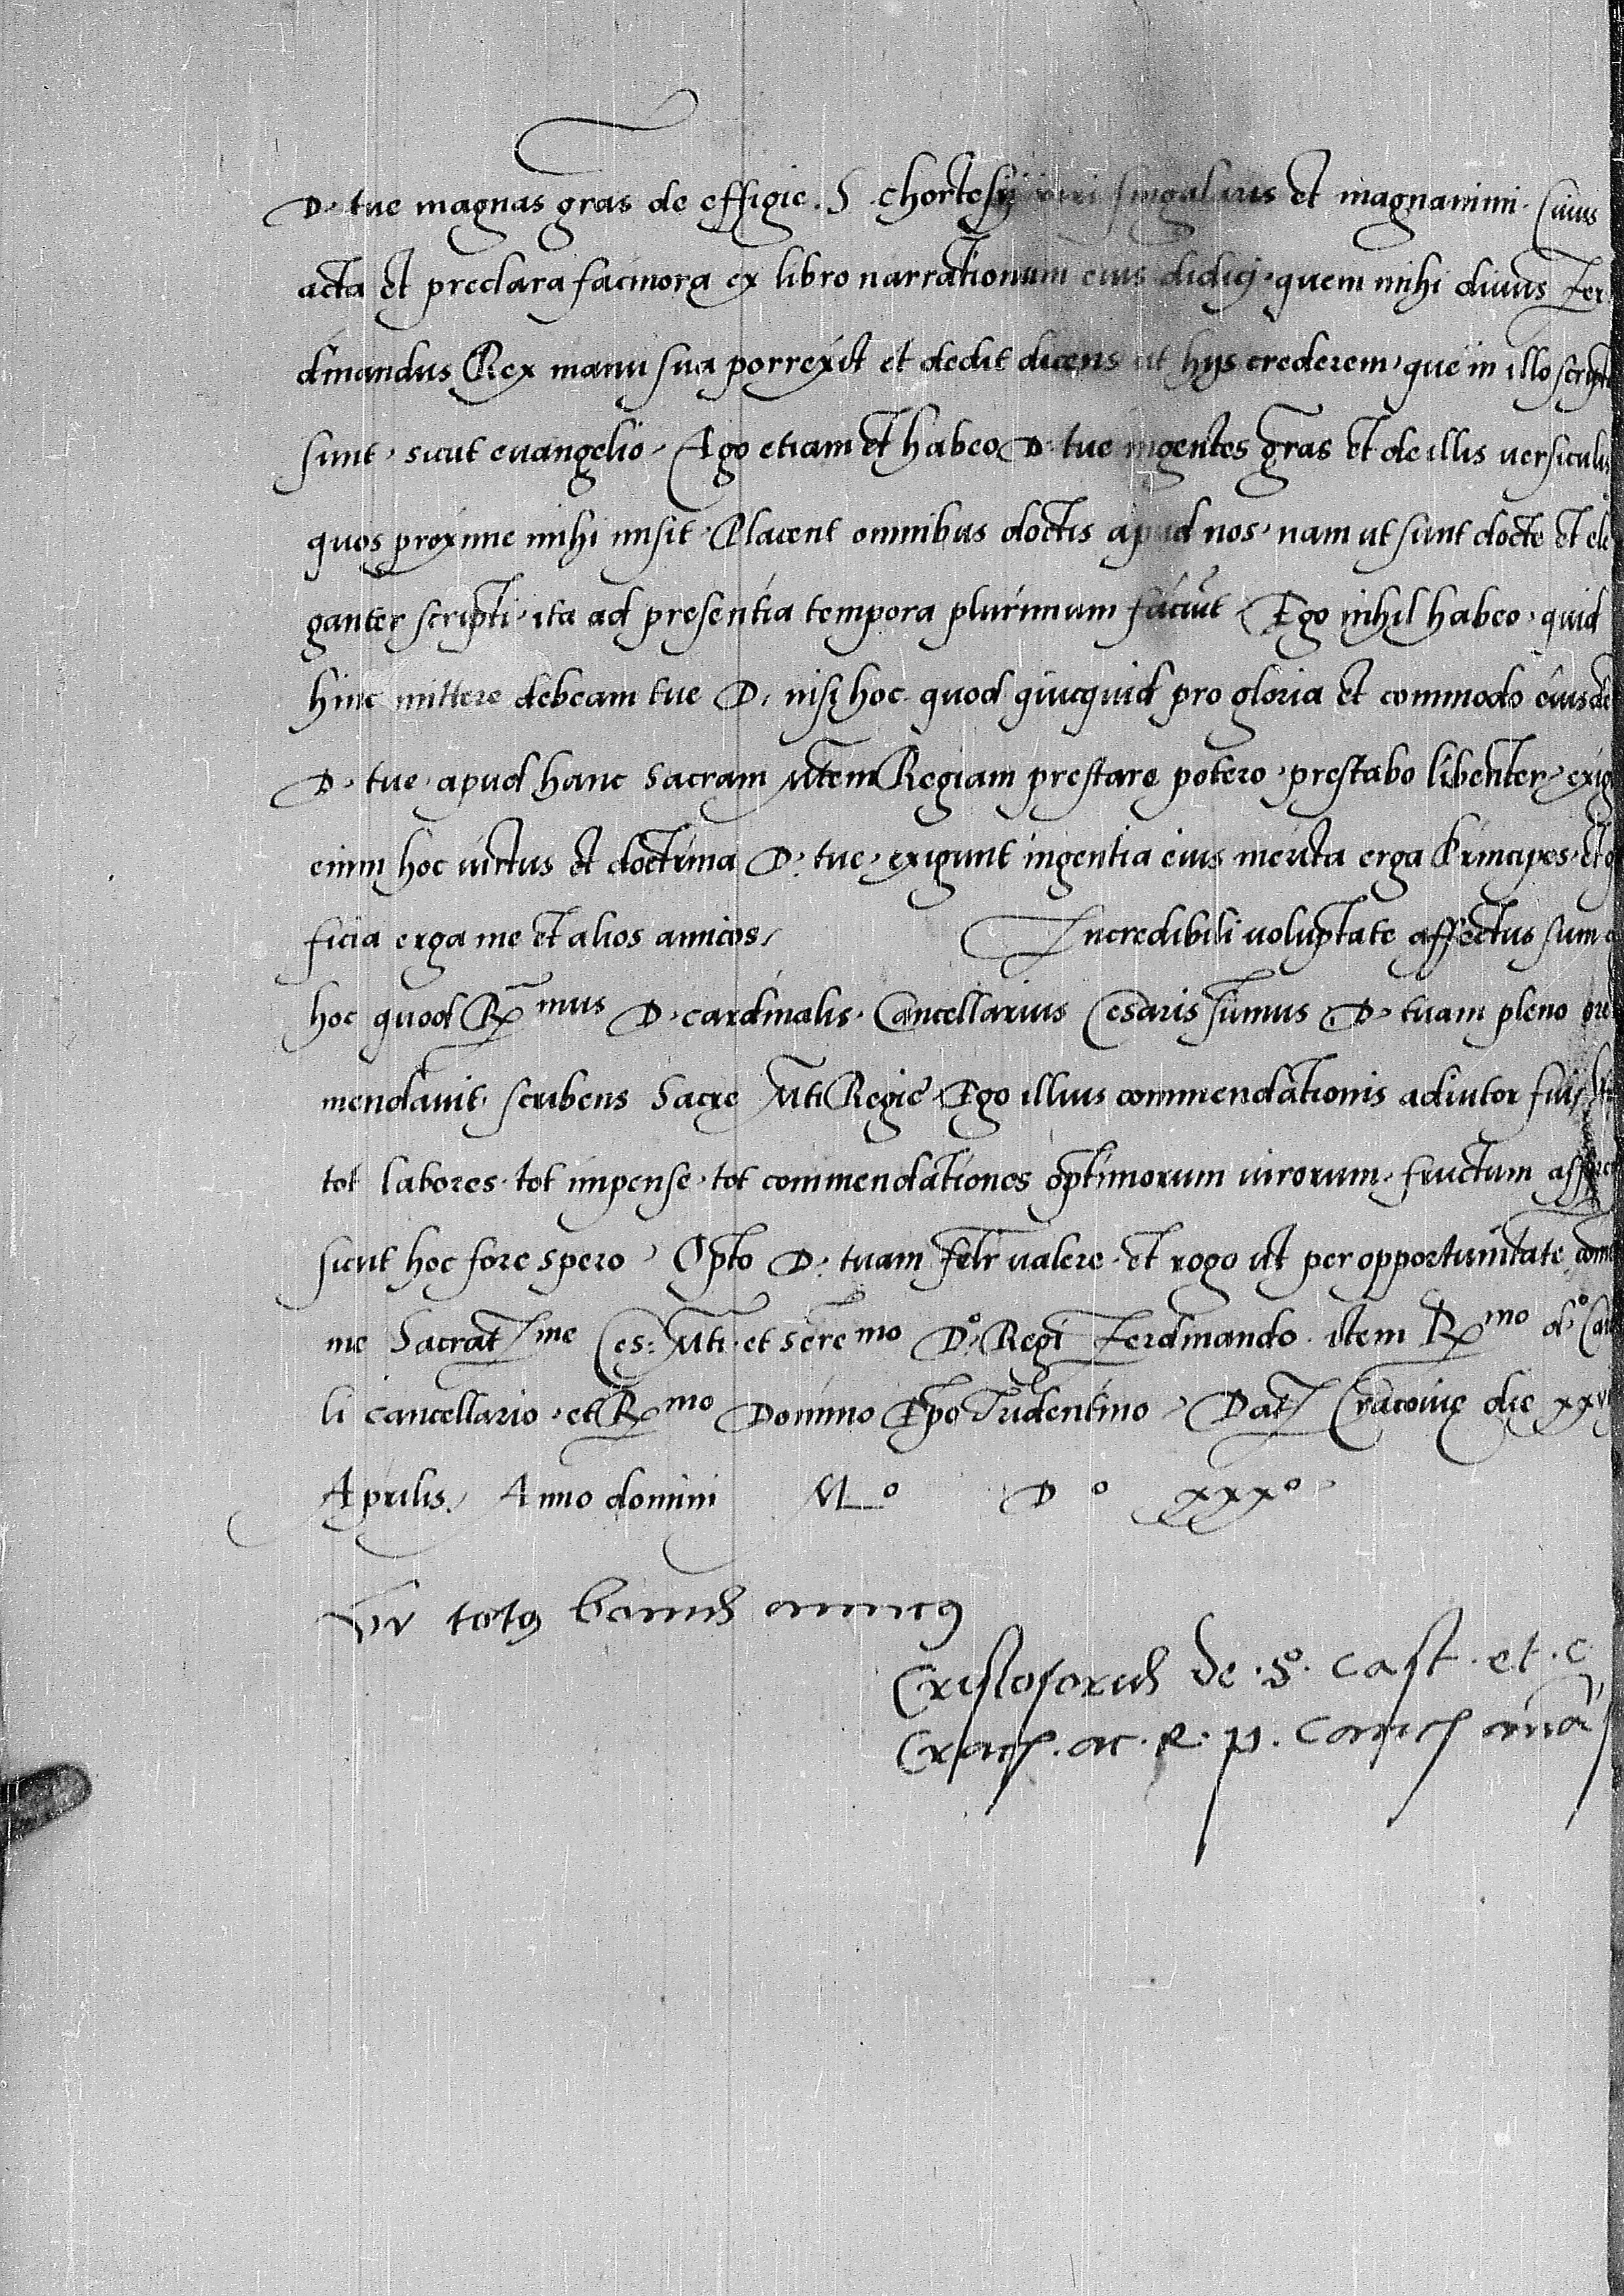 D. tue magnas gras de effigie. S. chortesij viri singularis et magnanimi. Cuius
acta et preclara facinora ex libro narrationum eius didici. quem mihi divus Fer
dinandus Rex manu sua porrexit et dedit dicens ut hijs crederem, que in illo scripta
sunt, sicut evangelio. Ago etiam et habeo D. tue ingentes gras et de illis versiculis
quos proxime mihi misit. Placent omnibus doctis apud nos, nam ut sunt docte et ele
ganter scripti, ita ad presentia tempora plurimum faciut. Ego nihil habeo, quid
hinc mittere debeam tue D, nisi hoc quod quicquid pro gloria et commodo eiusde
D. tue, apud hanc Sacram Mtem Regiam prestare potero, prestabo libenter, exig
enim hoc virtus et doctrina D. tue, exigunt ingentia eius merita erga Principes, et
ficia erga me et alios amicos. Incredibili voluptate affectus sum
hoc quod Rmus D. cardinalis, Cancellarius Cesaris sumus D. tuam pleno ore
mendavit, scribens Sacre Mti Regie. Ego illius commendationis adiutor fui
tot labores, tot impense, tot commendationes optimorum virorum, fructum
sicut hoc fore spero. Opto D. tuam felr valere, et rogo ut per opportunitate com
me Sacratme Ces: Mti. et seremo Do. Regi Ferdinando. item Rmo do. Ca
li cancellario, et Rmo Domino Epo Tridentino. Dat Cracovie die xxvi
Aprilis. Anno domini Mo Do xxxo
Vr totus bonus amicus
Cristoforus de S. cast. et. c
Crac. ac. R. p. canc